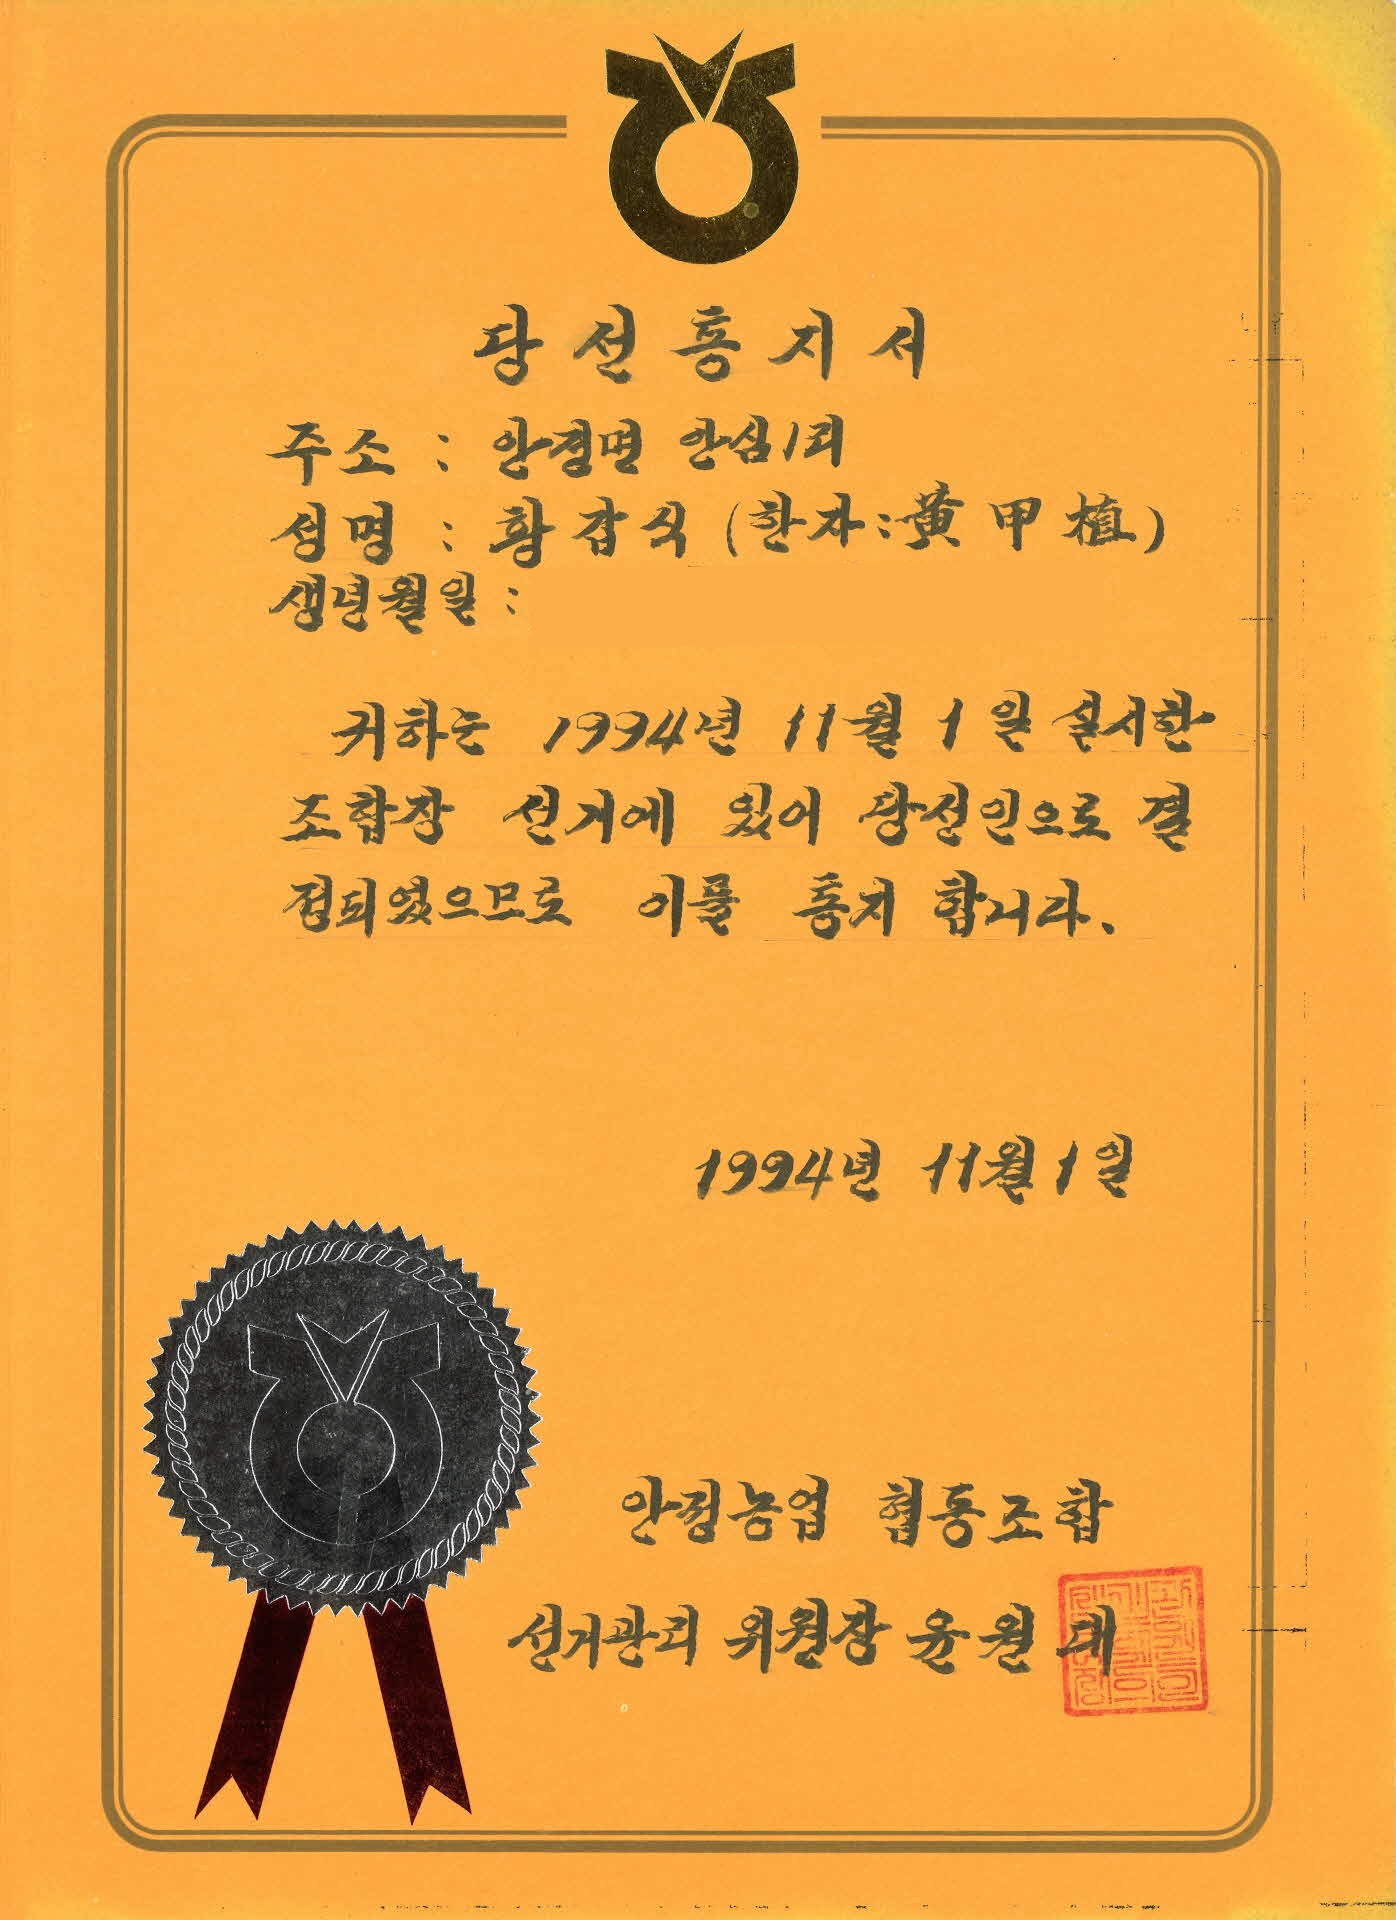 당선통지서
주소 : 안정면 안심1리
성명 : 황갑식 (한자:黃甲植)
생년월일 :
귀하는 1994년 11월 1일 실시한
조합장 선거에 있어 당선인으로 결
정되었으므로 이를 통지 합니다.
1994년 11월 1일
안정농업 협동조합
선거관리 위원장 윤원대